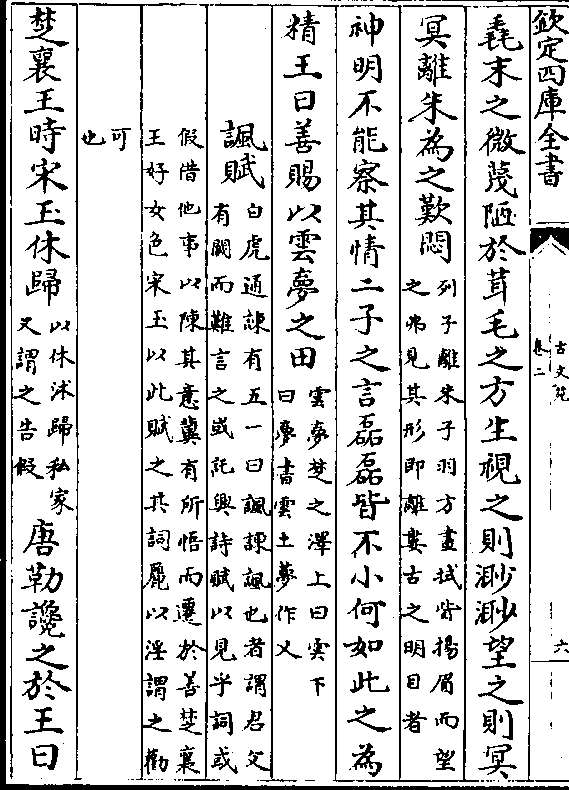 欽定四庫全書
古文苑
卷二
六
毳末之微蔑陋於茸毛之方生視之則渺渺望之則冥
冥離朱為之歎悶
列子離朱子羽方晝拭眥揚眉而望
之弗見其形即離婁古之明目者
神明不能察其情二子之言磊磊皆不小何如此之為
精王曰善賜以雲夢之田
雲夢楚之澤上曰雲下
曰夢書雲土夢作乂
諷賦
白虎通諫有五一曰諷諫諷也者謂君父
有闕而難言之或託興詩賦以見乎詞或
假借他事以陳其意冀有所悟而遷於善楚襄
王好女色宋玉以此賦之其詞麗以淫謂之勸
可
也
楚襄王時宋玉休歸
以休沐歸私家
又謂之告假
唐勒讒之於王曰